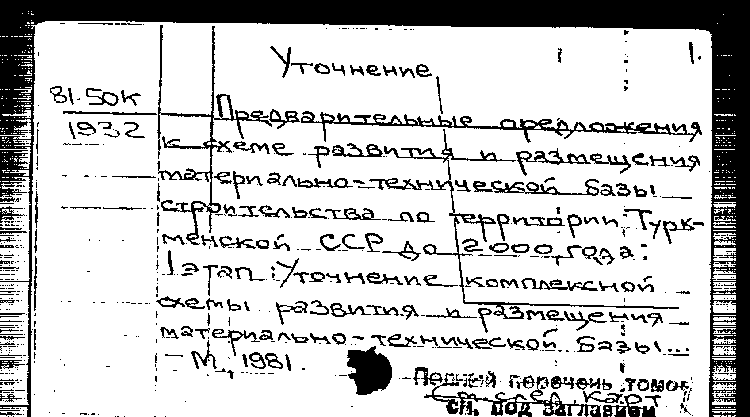 Уточнение 1.
81.50к
1932
Предварительные предложения
к схеме развития и размещения
материально-технической базы
строительства по территории Турк-
менской ССР до 2000 года:
I этап: Уточнение комплексной
схемы развития и размещения
материально-технической базы...
- М., 1981.
Полный перечень томов
См. след. карт
см. под заглавием